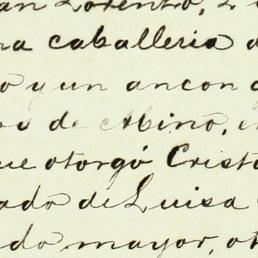 an Lorenzo,
na caballeria
o y un ancon
os de Albino,
ue otorgó Crist
ado de Luisa
do mayor, ot